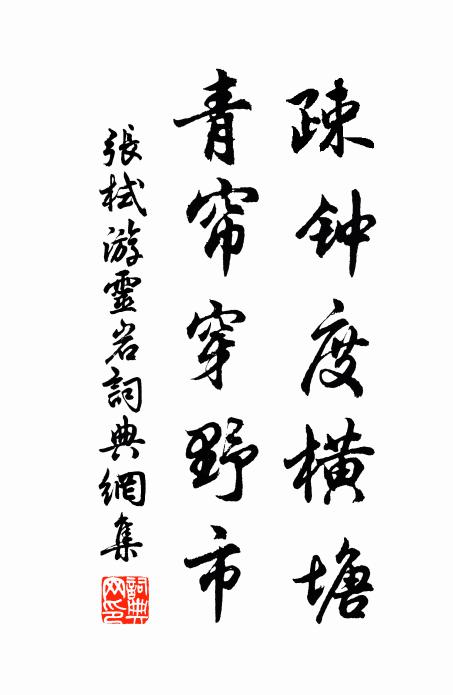 疎钟度横塘
青帘穿野市
張栻游靈岩詞典網集
詞典网印